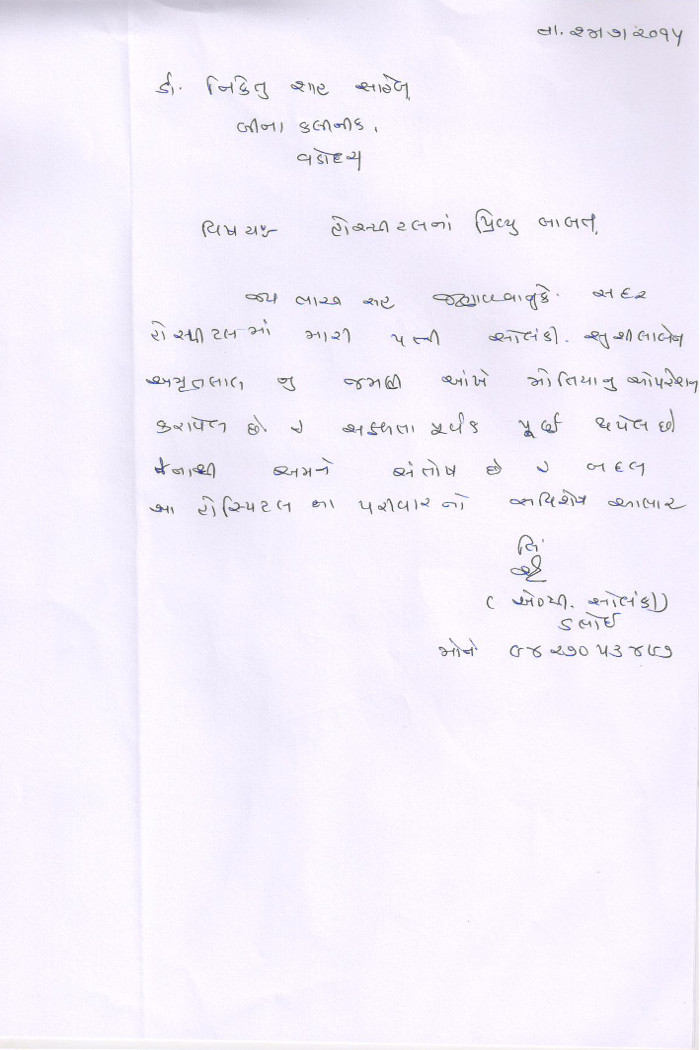 તા. ૨૪૭/૨૦૧૫
ડૉ. નિકેતુ શાહ સાહેબ,
બીના કલીનીક,
વડોદરા
વિષય:- હોસ્પીટલનાં રિવ્યુ બાબત,
જય ભારત સહ જણાવવાનુકે. સદર
હોસ્પીટલમાં મારી પત્ની સોલંકી. સુશીલાબેન
અમૃતલાલ નુ જમણી આંખે મોતિયાનુ ઓપરેશન
કરાવેલ છે જે સફળતા પૂર્વક પૂર્ણ થયેલ છે
જેનાથી અમને સંતોષ છે જે બદલ
આ હોસ્પિટલ ના પરીવાર નો સવિશેષ આભાર
લિ
( એ૦ચી. સોલંકી)
ડભોઈ
મોનં